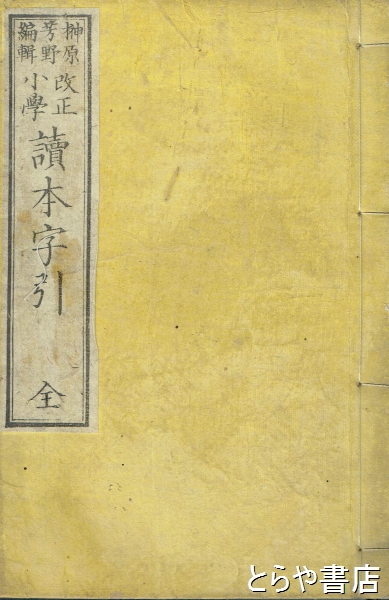 榊原
芳野
編輯
改正
小學
讀本字引
全
とらや書店